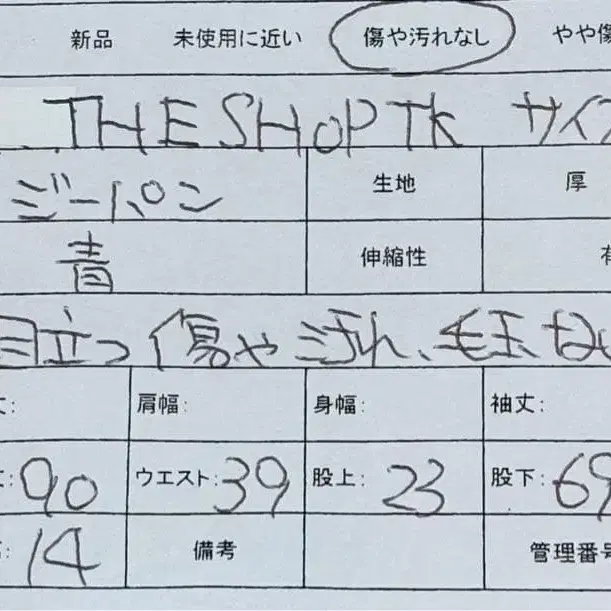 新品 未使用に近い 傷や汚れなし やや傷
THE SHOP TK サイズ
ジーパン 生地 厚
青 伸縮性 有
目立つ傷や汚れ、毛玉なし
丈: 肩幅: 身幅: 袖丈:
丈: 90 ウエスト: 39 股上: 23 股下: 69
14 備考 管理番号